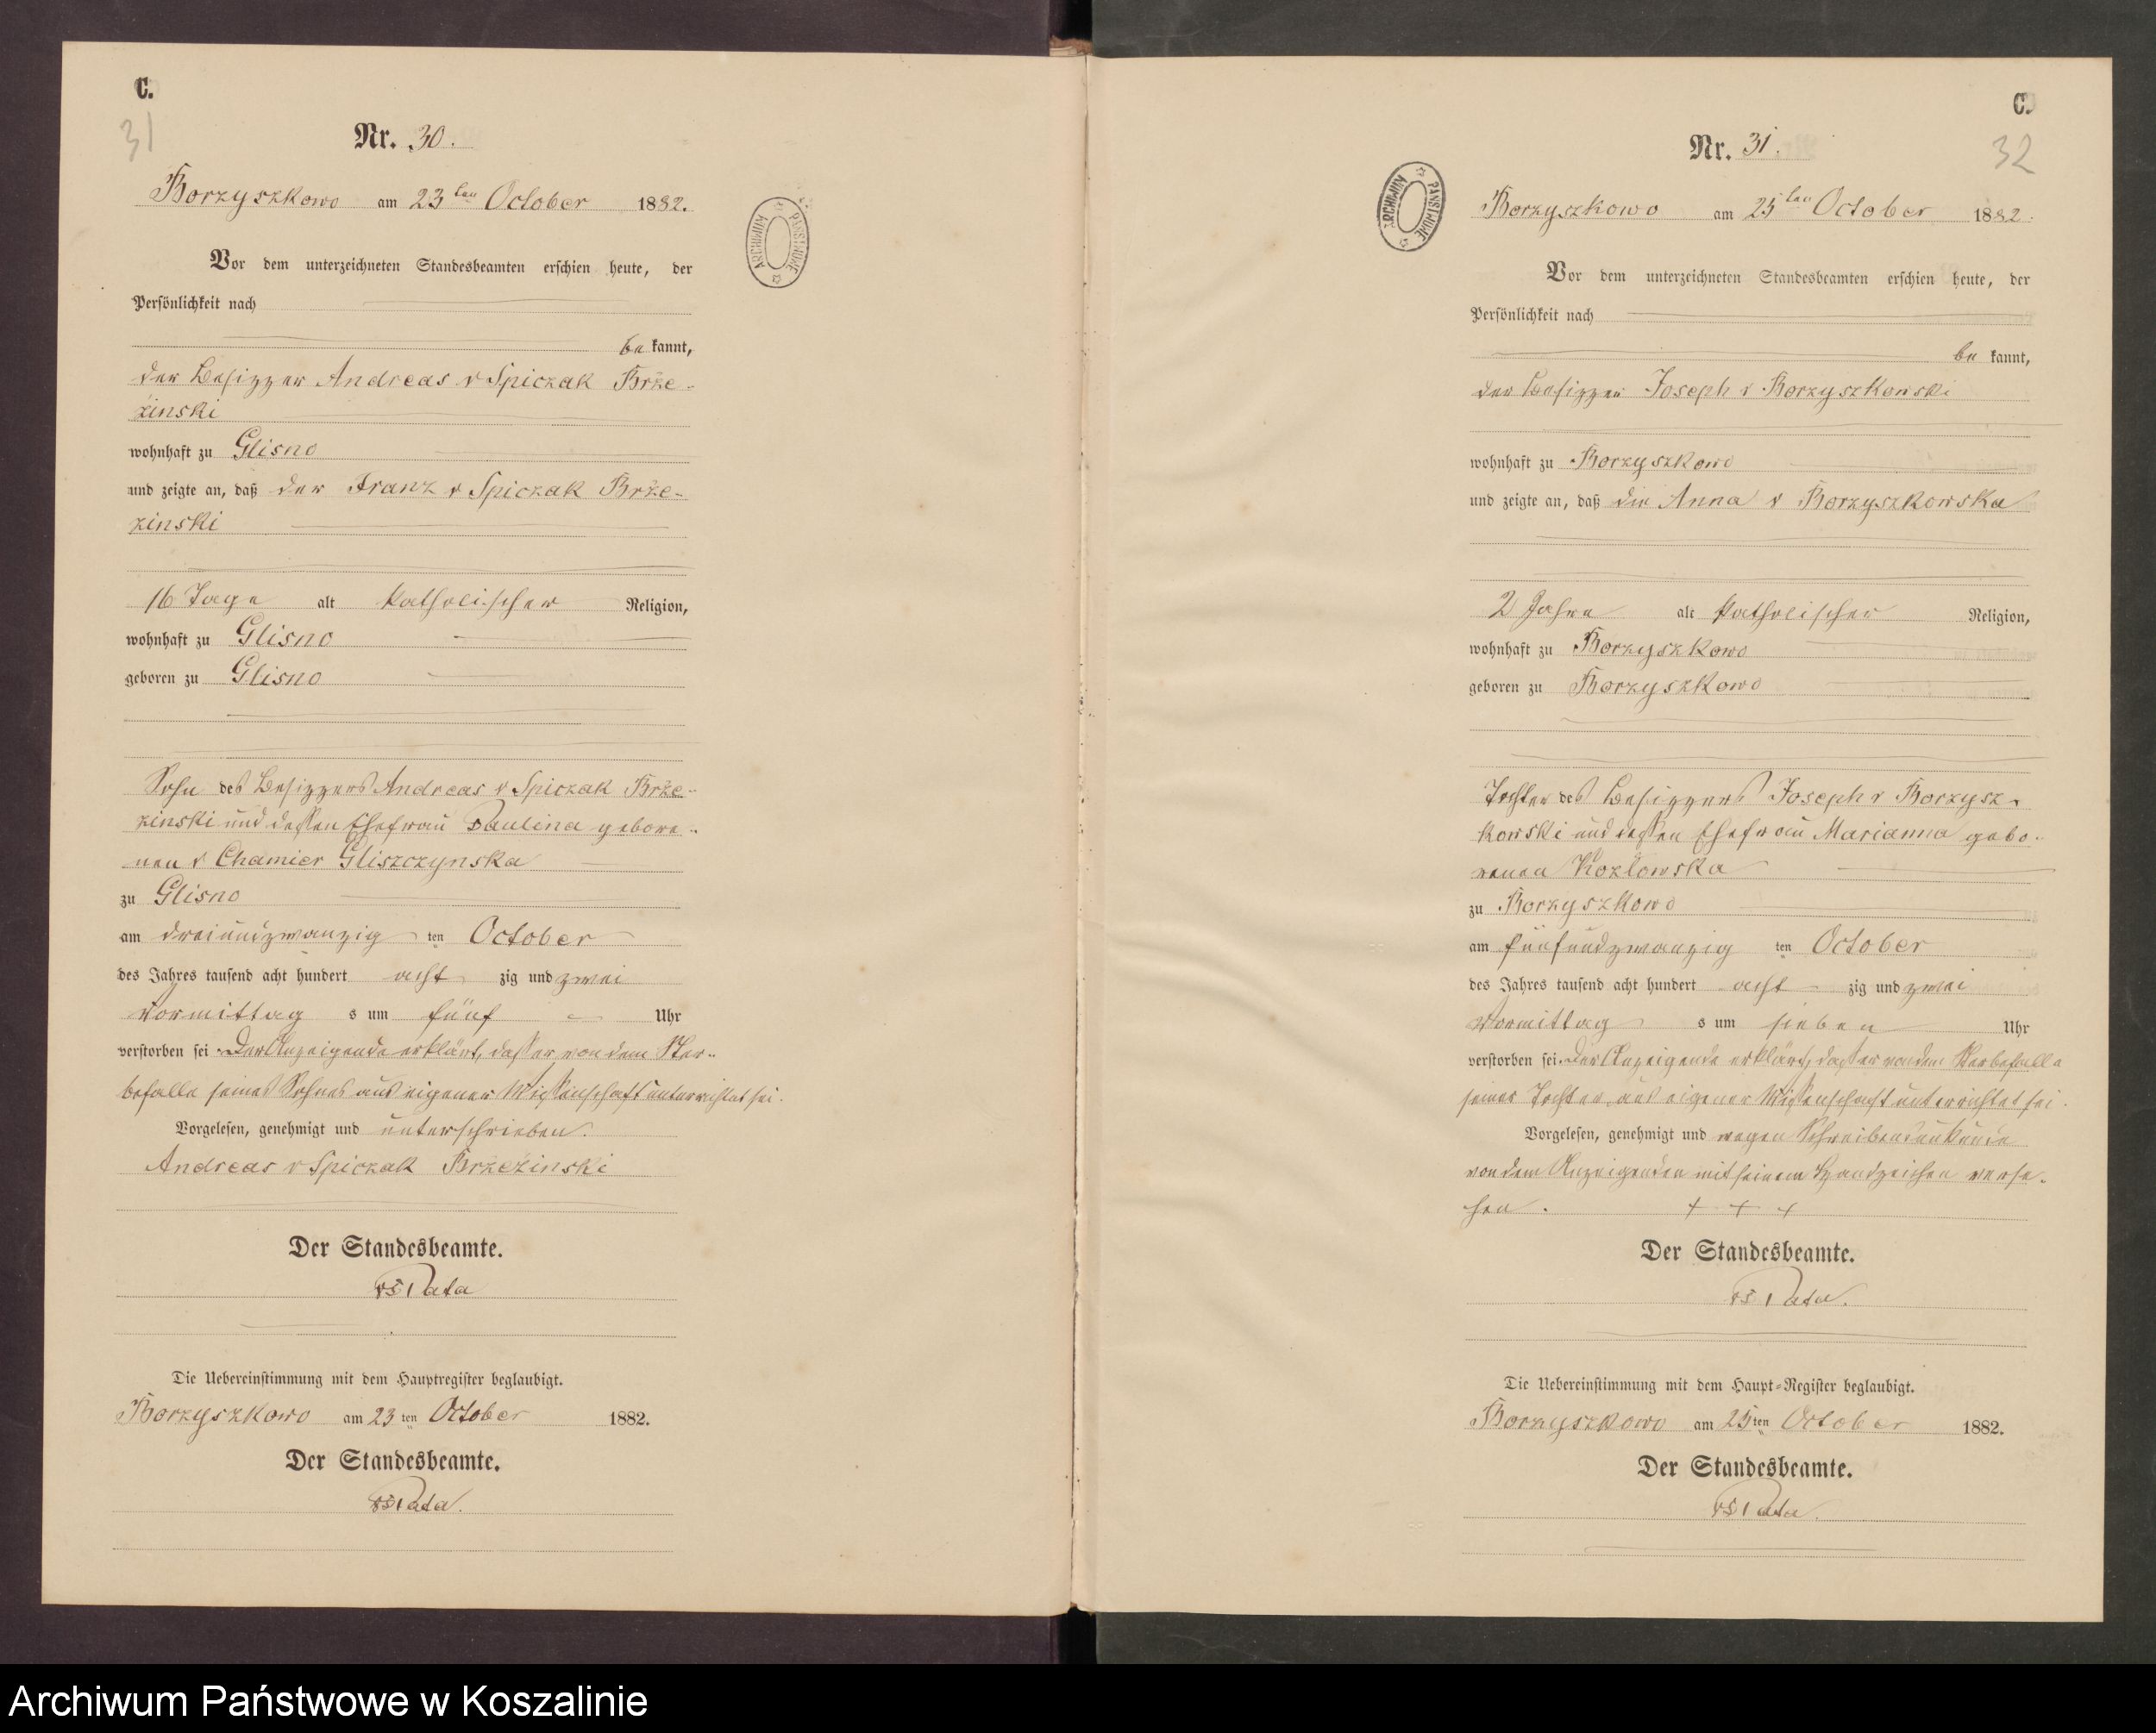 C.
31
Nr. 30.
Borzyszkowo am 23ten October 1882.
ARCHIWUM PAŃSTWOWE
Vor dem unterzeichneten Standesbeamten erschien heute, der
Persönlichkeit nach
be kannt,
der Besizzer Andreas v Spiczak Brze-
zinski
wohnhaft zu Glisno
und zeigte an, daß der Franz v Spiczak Brze-
zinski
16 Tage alt katholischer Religion,
wohnhaft zu Glisno
geboren zu Glisno
Sohn des Besizzers Andreas v Spiczak Brze-
zinski und dessen Ehefrau Paulina gebore-
nen v Chamier Gliszczynska
zu Glisno
am dreiundzwanzig ten October
des Jahres tausend acht hundert acht zig und zwei
Vormittag s um fünf Uhr
verstorben sei. Der Anzeigende erklärt, dass er von dem Ster-
befalle seines Sohnes aus eigener Wissenschaft unterrichtet sei.
Vorgelesen, genehmigt und unterschrieben.
Andreas v Spiczak Brzezinski
Der Standesbeamte.
Pata
Die Uebereinstimmung mit dem Hauptregister beglaubigt.
Borzyszkowo am 23ten October 1882.
Der Standesbeamte.
Pata.
C.
32
Nr. 31.
ARCHIWUM PAŃSTWOWE
Borzyszkowo am 25ten October 1882.
Vor dem unterzeichneten Standesbeamten erschien heute, der
Persönlichkeit nach
be kannt,
der Besizzer Joseph v Borzyszkowski
wohnhaft zu Borzyszkowo
und zeigte an, daß die Anna v Borzyszkowska
2 Jahre alt katholischer Religion,
wohnhaft zu Borzyszkowo
geboren zu Borzyszkowo
Tochter des Besizzers Joseph v Borzysz-
kowski und dessen Ehefrau Marianna gebo-
renen Kozlowska
zu Borzyszkowo
am fünfundzwanzig ten October
des Jahres tausend acht hundert acht zig und zwei
Vormittag s um sieben Uhr
verstorben sei. Der Anzeigende erklärt, dass er von dem Sterbefalle
seiner Tochter aus eigener Wissenschaft unterrichtet sei.
Vorgelesen, genehmigt und wegen Schreibensunkunde
von dem Anzeigenden mit seinem Handzeichen verse-
hen. + + +
Der Standesbeamte.
Pata.
Die Uebereinstimmung mit dem Haupt-Register beglaubigt.
Borzyszkowo am 25ten October 1882.
Der Standesbeamte.
Pata.
Archiwum Państwowe w Koszalinie